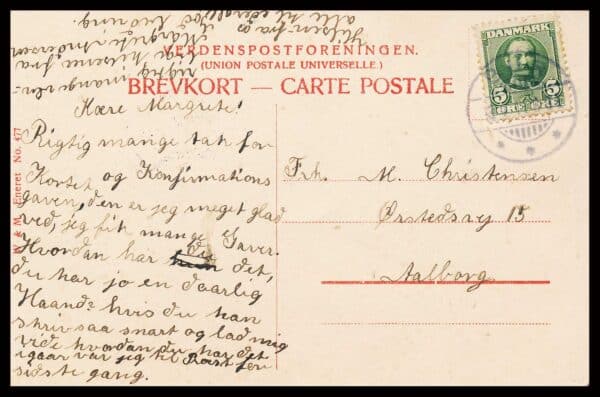 VERDENSPOSTFORENINGEN.
(UNION POSTALE UNIVERSELLE)
BREVKORT — CARTE POSTALE
DANMARK
5 5
ØRE ØRE
W & M. Eneret No. 477
Kære Margrete!
Rigtig mange tak for
Kortet og Konfirmations
gaven, den er jeg meget glad
ved, jeg fik mange Gaver.
Hvordan har du det,
du har jo en daarlig
Haand? hvis du kan
skriv saa snart og lad mig
vide hvordan du har det
igaar var jeg til Præst for
sidste gang.
rigtig mange ven-
fra
Margrete Andersen
Hilsen fra os
alle til eder alle
God bedring.
Frk. M. Christensen
Ørstedsvej 15
Aalborg